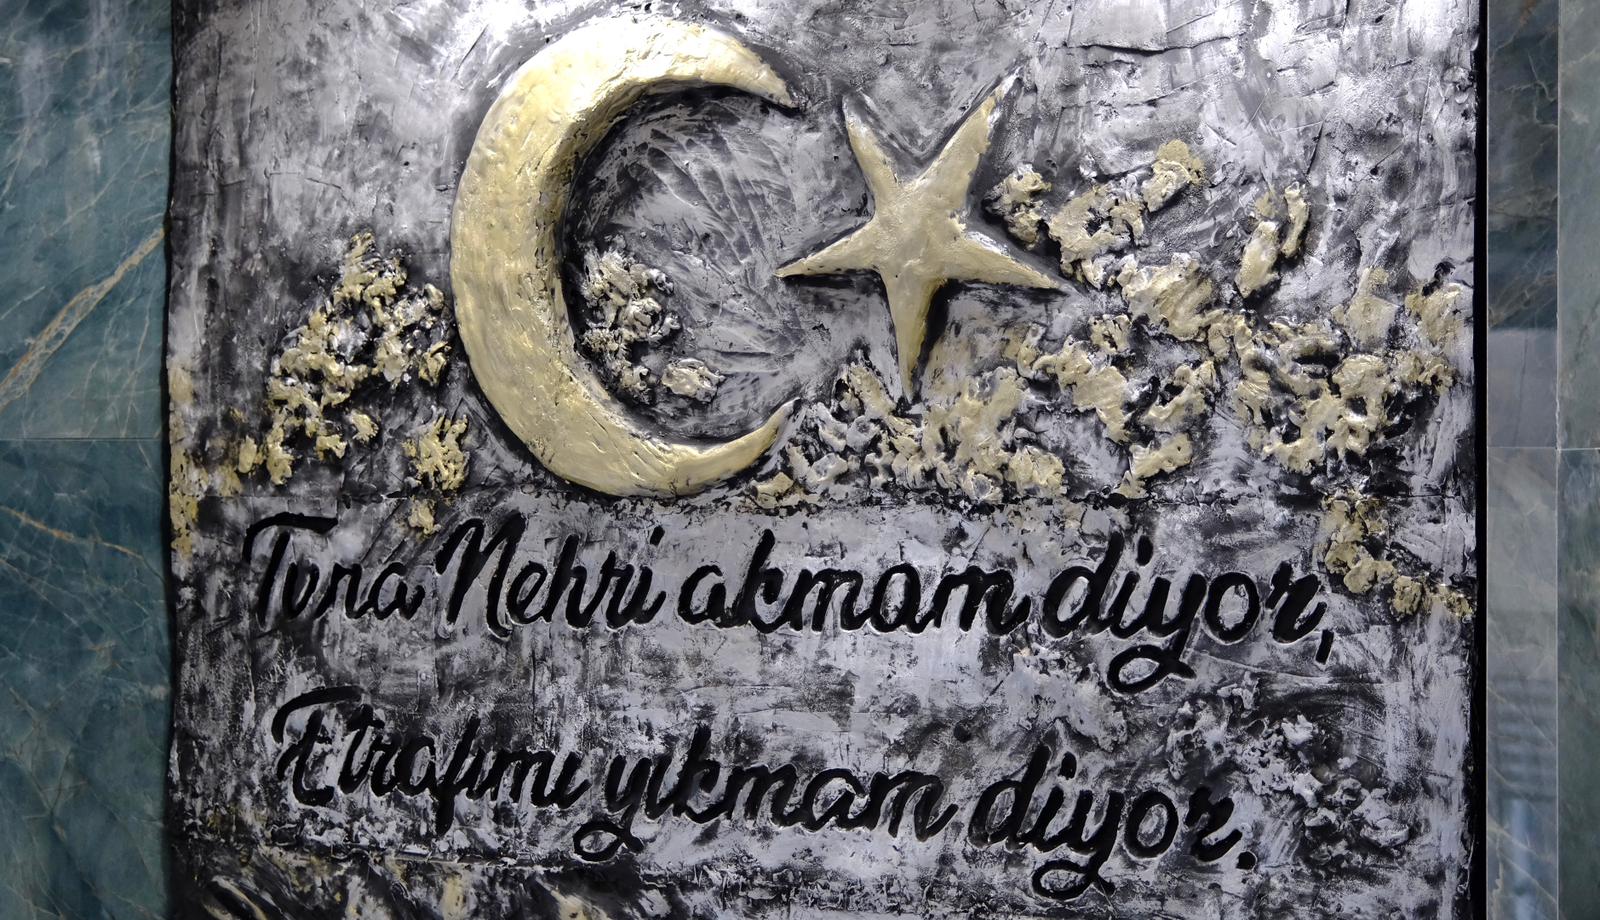 Tuna Nehri akmam diyor,
Etrafımı yıkmam diyor.